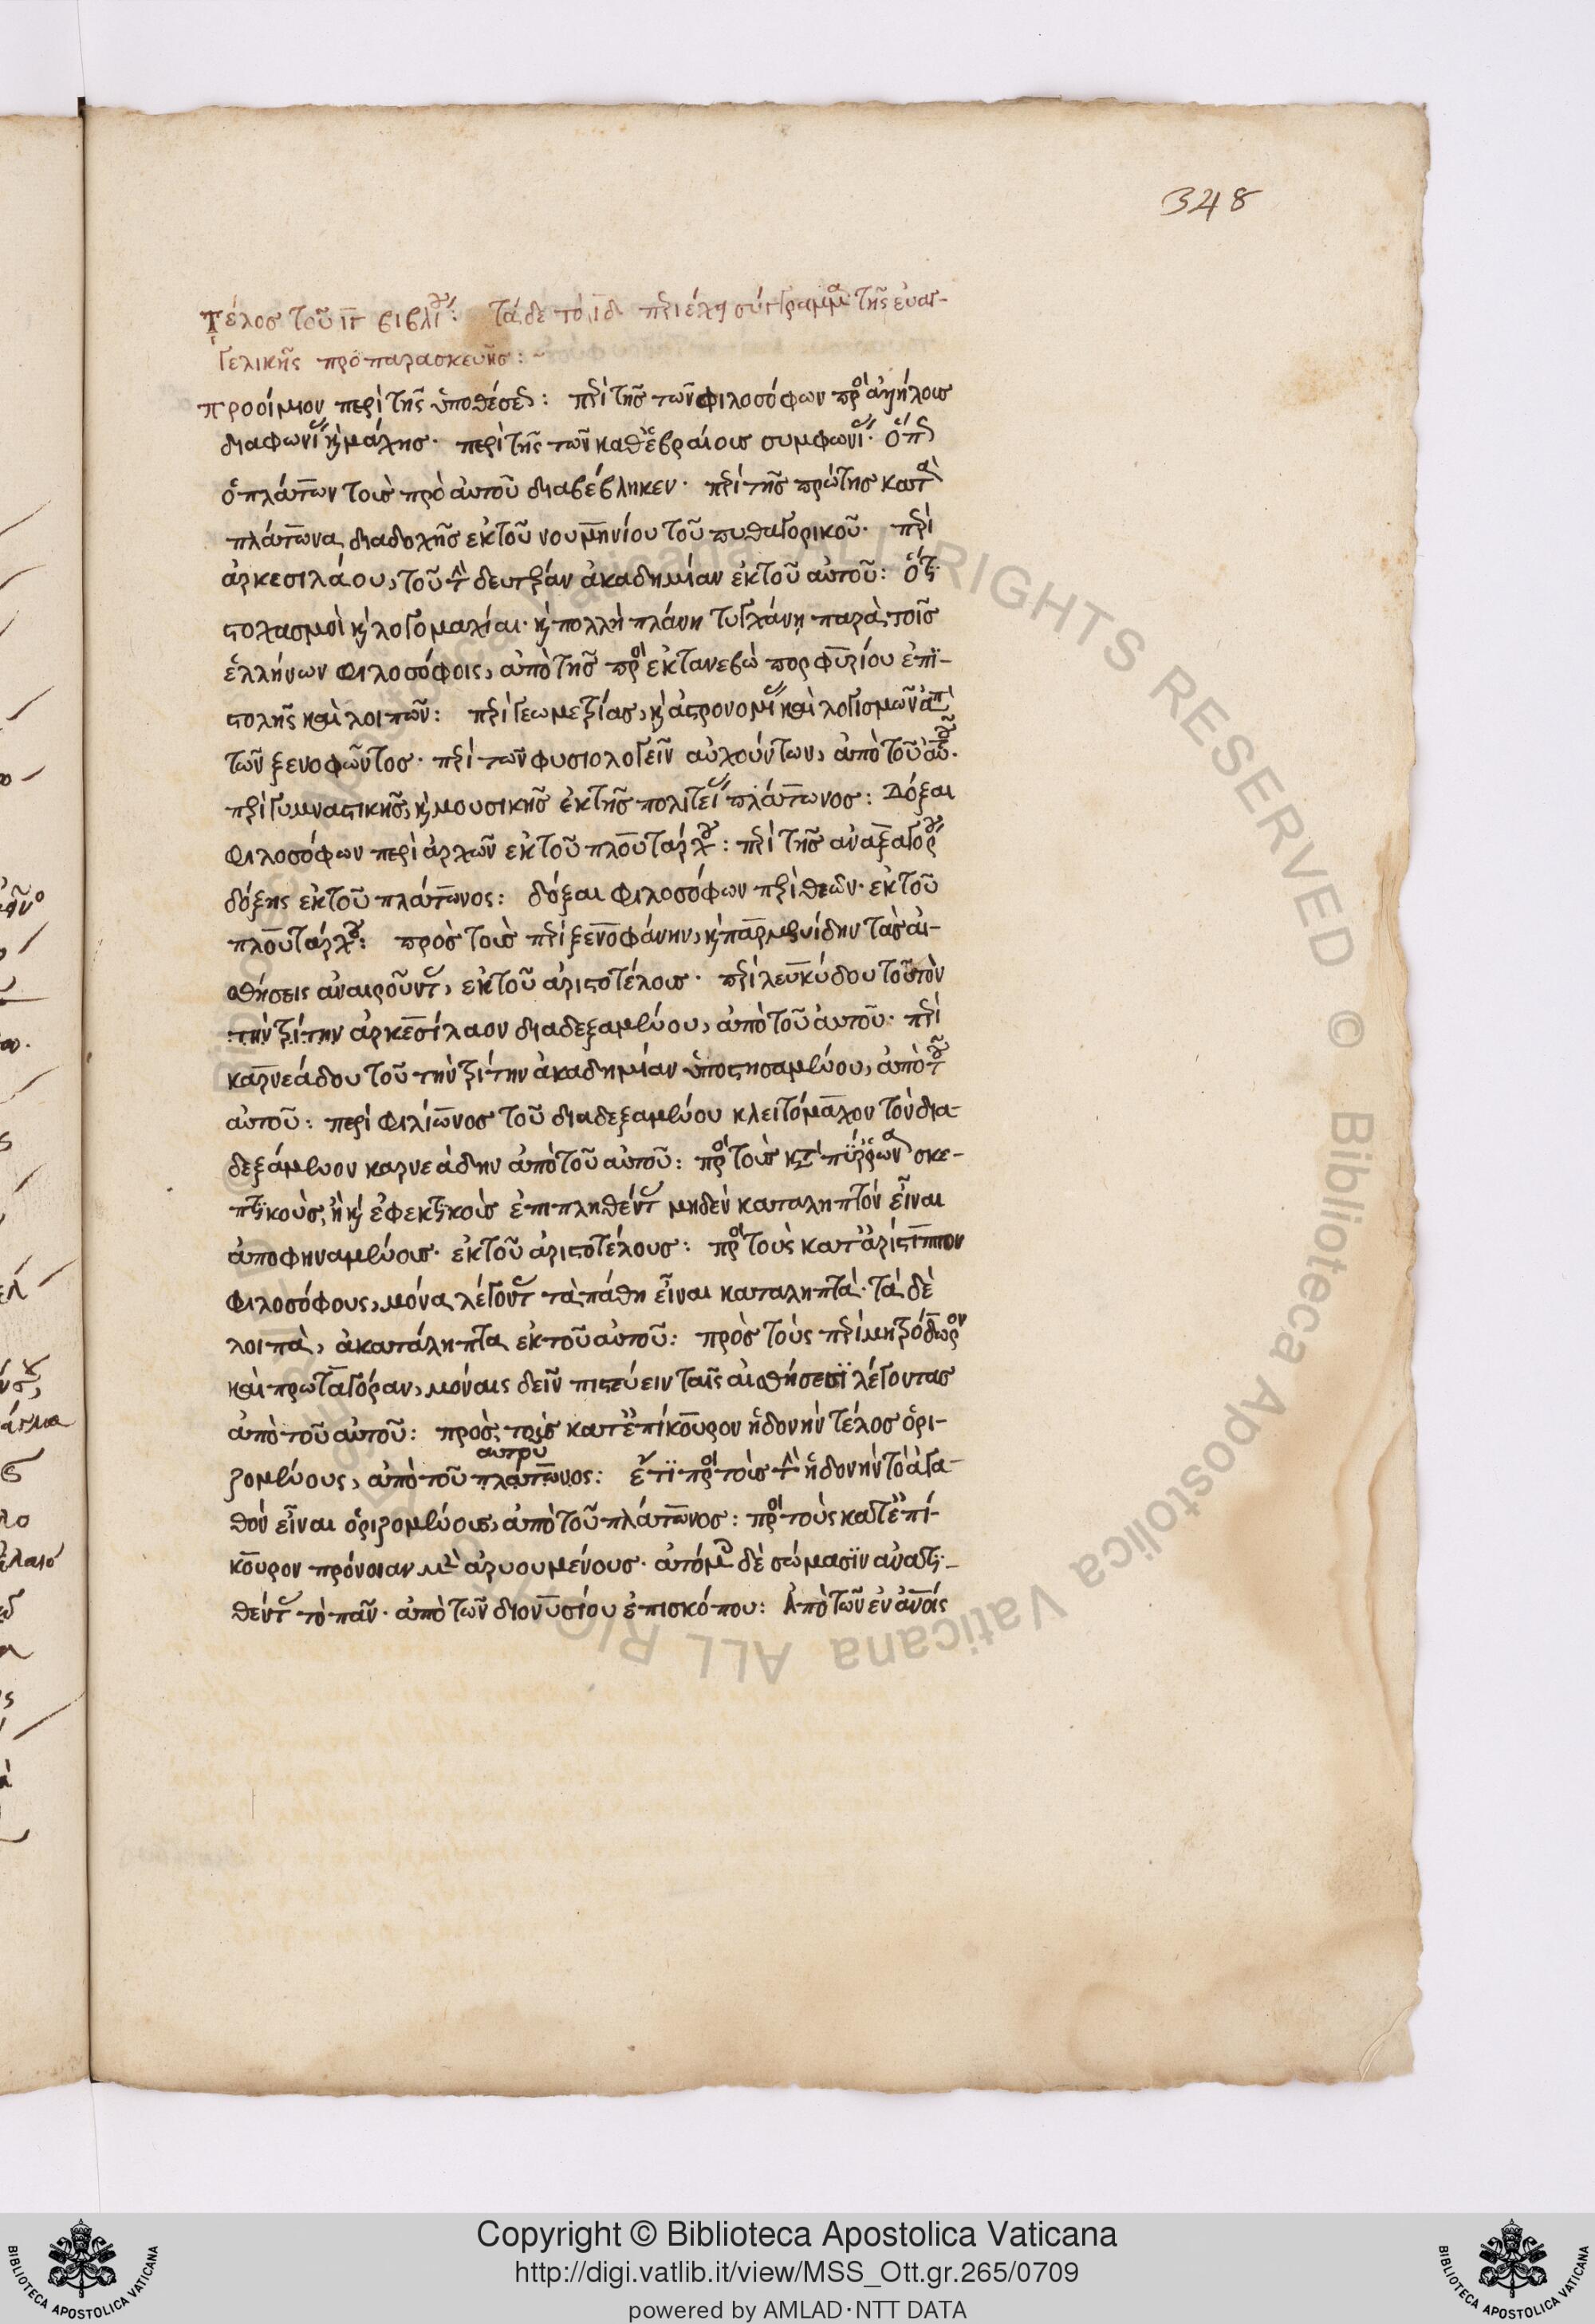 348
Τέλος τοῦ ιγ βιβλί: τάδε τὸ ιδ περιέχει σύγγραμμα τῆς εὐαγ-
γελικῆς προπαρασκευῆς:~
προοίμιον περὶ τῆς ὑποθέσεως: περὶ τῆς τῶν φιλοσόφων πρὸς ἀλλήλους
διαφωνί καὶ μάχης. περὶ τῆς τῶν καθ' ἑβραίους συμφωνί. ὅπως
ὁ πλάτων τοὺς πρὸ αὐτοῦ διαβέβληκεν. περὶ τῆς πρώτης κατὰ
πλάτωνα διαδοχῆς ἐκ τοῦ νουμηνίου τοῦ πυθαγορικοῦ. περὶ
ἀρκεσιλάου, τοῦ τὴν δευτέραν ἀκαδημίαν ἐκ τοῦ αὐτοῦ: ὅτι
στοχασμοὶ καὶ λογομαχίαι. καὶ πολλὴ πλάνη τυγχάνει παρὰ τοῖς
ἑλλήνων φιλοσόφοις, ἀπὸ τῆς πρὸς ἐκτανεβὼ πορφυρίου ἐπϊ-
στολῆς καὶ λοιπῶν: περὶ γεωμετρίας, καὶ ἀστρονομί καὶ λογισμῶν ἀπὸ
τῶν ξενοφῶντος. περὶ τῶν φυσιολογεῖν αὐχούντων, ἀπὸ τοῦ αὐτοῦ.
περὶ γυμναστικῆς, καὶ μουσικῆς ἐκ τῆς πολιτεί πλάτωνος: Δόξαι
φιλοσόφων περὶ ἀρχῶν ἐκ τοῦ πλουτάρχου: περὶ τῆς ἀναξαγόρου
δόξης ἐκ τοῦ πλάτωνος: δόξαι φιλοσόφων περὶ θεῶν. ἐκ τοῦ
πλουτάρχου: πρὸς τοὺς περὶ ξενοφάνην, καὶ παρμενίδην τὰς αἰ-
σθήσεις ἀναιροῦντας, ἐκ τοῦ ἀριστοτέλους. περὶ λευκύδου τοῦ τὸν
τὴν τρίτην ἀρκεσίλαον διαδεξαμένου, ἀπὸ τοῦ αὐτοῦ. περὶ
καρνεάδου τοῦ τὴν τρίτην ἀκαδημίαν ὑποστησαμένου, ἀπὸ τοῦ
αὐτοῦ: περὶ φιλίωνος τοῦ διαδεξαμένου κλειτόμαχον τὸν δια-
δεξάμενον καρνεάδην ἀπὸ τοῦ αὐτοῦ: πρὸς τοὺς κατὰ πύρρωνα σκε-
πτικοὺς, ἢ καὶ ἐφεκτικοὺς ἐπιπληθέντας μηδὲν καταληπτὸν εἶναι
ἀποφηναμένους. ἐκ τοῦ ἀριστοτέλους: πρὸς τοὺς κατ' ἀρίστιππον
φιλοσόφους, μόνα λέγοντας τὰ πάθη εἶναι καταληπτά. τὰ δὲ
λοιπὰ, ἀκατάληπτα ἐκ τοῦ αὐτοῦ: πρὸς τοὺς περὶ μητρόδωρον
καὶ πρωταγόραν, μόναις δεῖν πιστεύειν ταῖς αἰσθήσεσϊ λέγοντας
ἀπὸ τοῦ αὐτοῦ: πρὸς τοὺς κατ' ἐπίκουρον ἡδονὴν τέλος ὁρι-
αυτου
ζομένους, ἀπὸ τοῦ πλάτωνος: ἔτϊ πρὸς τοὺς τὴν ἡδονὴν τὸ ἀγα-
θὸν εἶναι ὁριζομένους, ἀπὸ τοῦ πλάτωνος: πρὸς τοὺς κατ' ἐπί-
κουρον πρόνοιαν μὲν ἀρνουμένους. ἀτόμοις δὲ σώμασϊν ἀνατι-
θέντας τὸ πᾶν. ἀπὸ τῶν διονυσίου ἐπισκόπου: Ἀπὸ τῶν ἐν
Copyright © Biblioteca Apostolica Vaticana
http://digi.vatlib.it/view/MSS_Ott.gr.265/0709
powered by AMLAD·NTT DATA
BIBLIOTECA APOSTOLICA VATICANA
BIBLIOTECA APOSTOLICA VATICANA